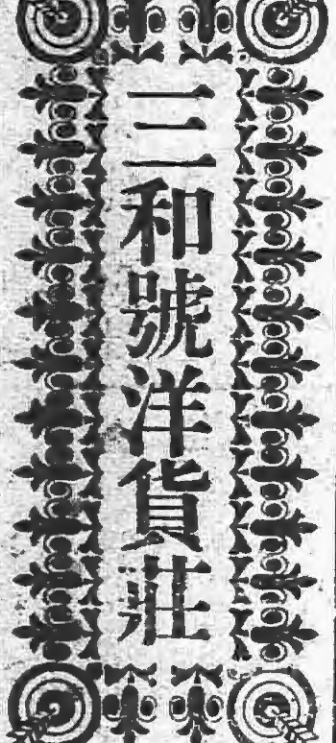 三和號洋貨莊